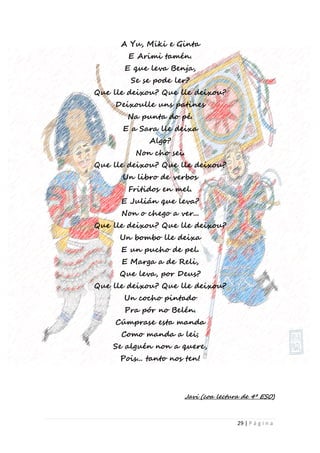 A Yu, Miki e Ginta
E Arimi tamén.
E que leva Benja,
Se se pode ler?
Que lle deixou? Que lle deixou?
Deixoulle uns patines
Na punta do pé.
E a Sara lle deixa
Algo?
Non cho sei.
Que lle deixou? Que lle deixou?
Un libro de verbos
Fritidos en mel.
E Julián que leva?
Non o chego a ver...
Que lle deixou? Que lle deixou?
Un bombo lle deixa
E un pucho de pel.
E Marga a de Reli,
Que leva, por Deus?
Que lle deixou? Que lle deixou?
Un cocho pintado
Pra pór no Belén.
Cúmprase esta manda
Como manda a lei;
Se alguén non a quere,
Pois... tanto nos ten!
Javi (coa lectura de 4º ESO)
29 | Página